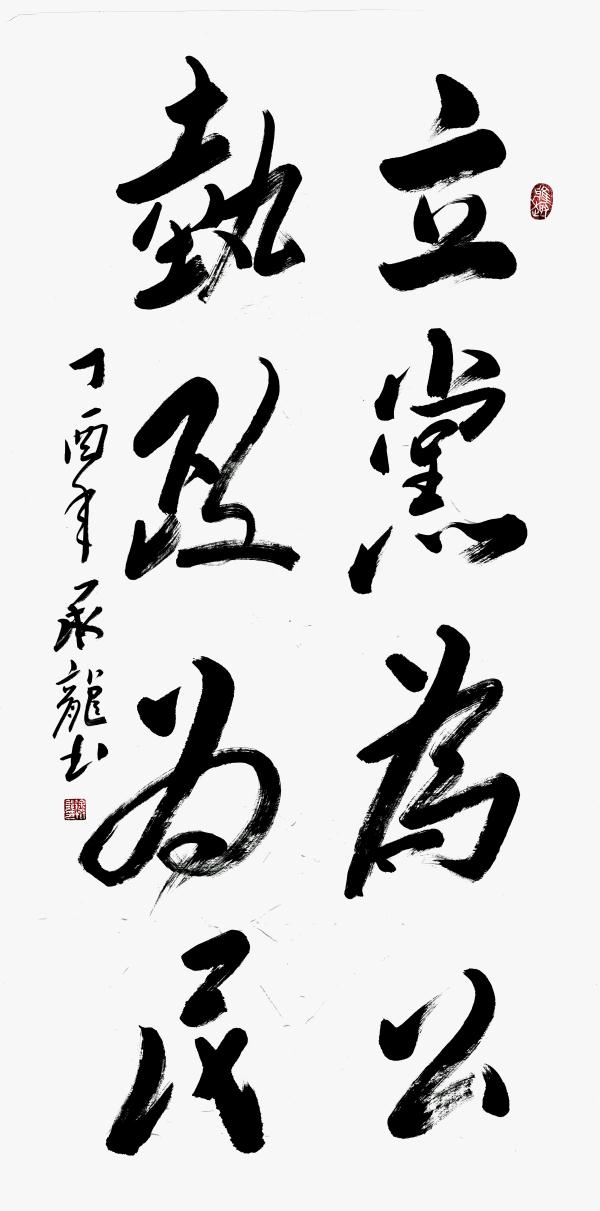 立黨為公
執政为民
丁酉年承龍书